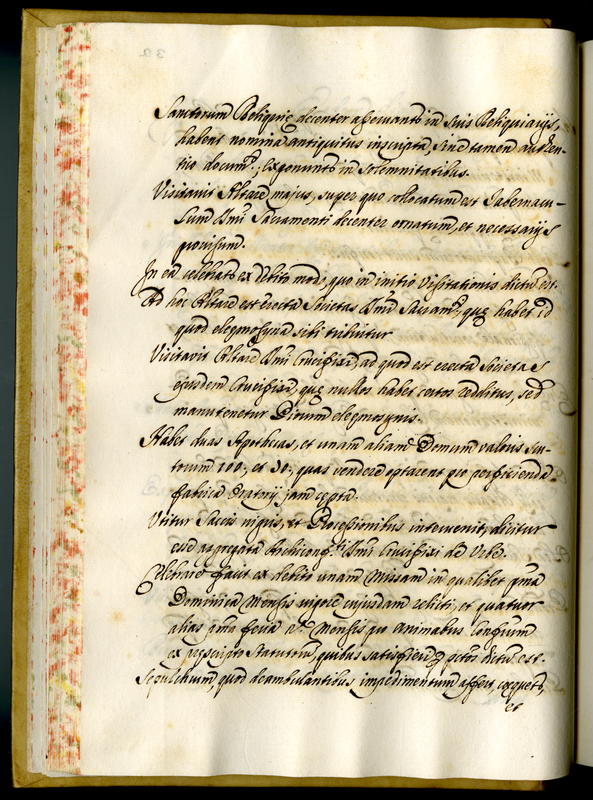 Sanctorum Reliquię decenter asservantr in suis Reliquiarijs,
habent nomina antiquitus inscripta, sine tamen authen-
tico docum.º, exponuntr in solemnitatibus.
Visitavit Altare majus, super quo collocatum est Tabernacu-
lum SSmi Sacramenti decenter ornatum, et necessarijs
provisum.
In eo celebratr ex debito modo, quo in initio Visitationis dictum est.
Ad hoc Altare est erecta Societas SSmi Sacram.ti, quę habet id
quod elegmosyna sibi tribuitur
Visitavit Altare SSmi Crucifixi, ad quod est erecta Societas
ejusdem Crucifixi, quę nullos habet certos redditus, sed
manutenetur Piorum elegmosynis.
Habet duas Apothecas, et unam aliam Domum valoris scu-
torum 100., et 30., quas vendere optarent pro perficienda
fabrica Oratorij jam cępta.
Utitur Saccis nigris, et Processionibus intervenit, dicitur
esse aggregata Archiconf.ti SSmi Crucifixi de Urbe.
Celebrare facit ex debito unam Missam in qualibet pma
Dominica Mensis vigore cujusdam relicti, et quatuor
alias pma feria Mensis pro Animabus Confrum
ex pręscripto Statutorum, quibus satisfieri dictum est.
Sepulchrum, quod deambulantibus impedimentum affert, ęquetr,
et